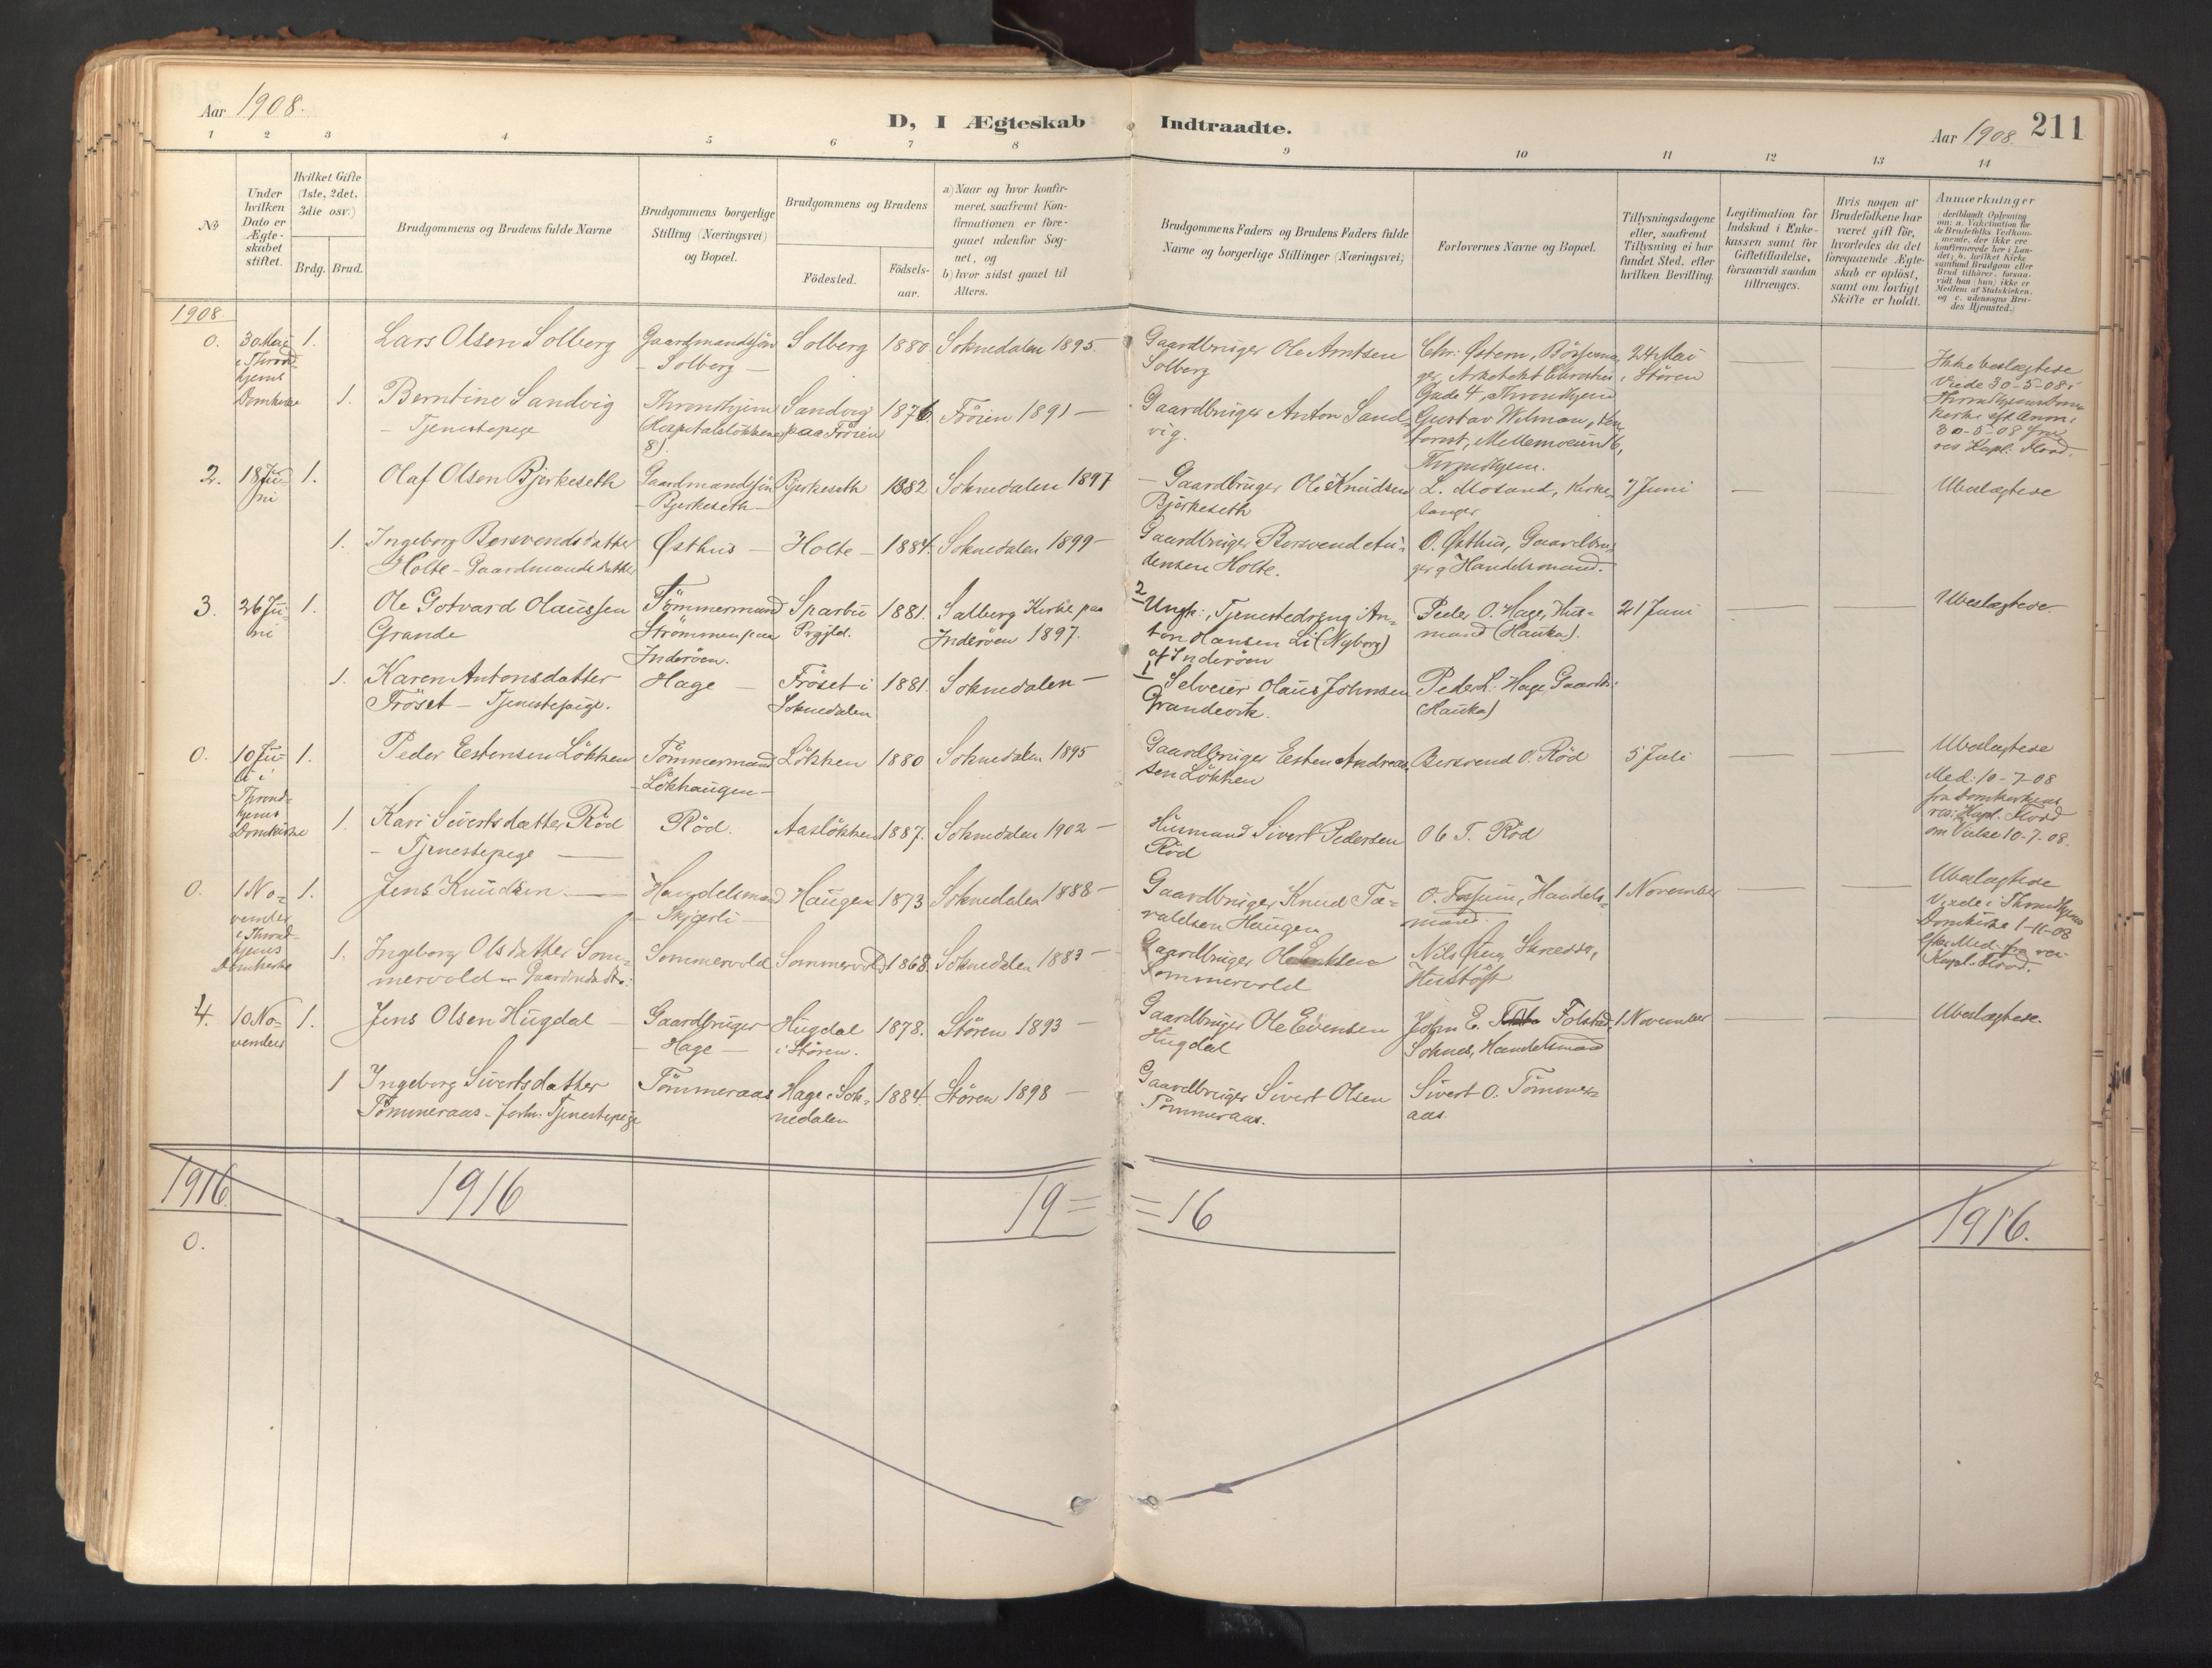 Aar 1908.
D, I Ægteskab Indtraadte.
Aar 1908. 211
1 2 3 4 5 6 7 8 9 10 11 12 13 14
№
Under hvilken Dato er Ægteskabet stiftet.
Hvilket Gifte (1ste, 2det, 3die osv.)
Brdg. Brud.
Brudgommens og Brudens fulde Navne
Brudgommens borgerlige Stilling (Næringsvei) og Bopæl.
Brudgommens og Brudens
Födested.
Födsels-aar.
a) Naar og hvor konfir-
meret, saafremt Kon-
firmationen er fore-
gaaet udenfor Sog-
net, og
b) hvor sidst gaaet til
Alters.
Brudgommens Faders og Brudens Faders fulde
Navne og borgerlige Stillinger (Næringsvei)
Forlovernes Navne og Bopæl.
Tillysningsdagene
eller, saafremt
Tillysning ei har
fundet Sted, efter
hvilken Bevilling.
Legitimation for
Indskud i Enke-
kassen samt for
Giftetilladelse,
forsaavidt saadan
tiltrænges.
Hvis nogen af
Brudefolkene har
været gift för,
hvorledes da det
foregaaende Ægte-
skab er oplöst,
samt om lovligt
Skifte er holdt.
Anmærkninger
(deriblandt Oplysning
om: a. Vakcination for
de Brudefolks Vedkom-
mende, der ikke ere
konfirmerede her i Lan-
det; b. hvilket Kirke-
samfund Brudgom eller
Brud tilhörer, forsaa-
vidt han (hun) ikke er
Medlem af Statskirken,
og c. udensogns Bru-
des Hjemsted.)
1908
0. 30 Mai i Thrond-hjems Domkirke 1. Lars Olsen Solberg Gaardmandssön - Solberg - Solberg 1880 Soknedalen 1895. Gaardbruger Ole Arntsen Solberg Chr: Östern, Bössema-ger, Arkitekt Christies Gade 4, Throndhjem 24 Mai i Stören
Ikke beslægtede
Viede 30-5-08 i
Throndhjems Dom-
kirke eft. Anm:
30-5-08 fra
res. Kapl. Flood.
1. Berntine Sandvig - Tjenestepige Throndhjem Hospitalslökkene 8). Sandvig paa Fröien 1876. Fröien 1891 - Gaardbruger Anton Sand-vig. Gustav Wilman, Mellemveien 16, Throndhjem.
2. 18 Ju-ni 1. Olaf Olsen Bjerkeseth Gaardmandssön - Bjerkeseth - Bjerkeseth 1882 Soknedalen 1897 - Gaardbruger Ole Knudsen Bjerkeseth L. Mosand, Kirke-sanger 7 Juni Ubeslægtede
1. Ingeborg Bersvendsdatter Holte - Gaardmandsdatter Østhus - Holte - 1884. Soknedalen 1899 - Gaardbruger Bersvend Au-densen Holte. O. Østhus, Gaardbru-ger og Handelsmand.
3. 26 Ju-ni 1. Ole Gotvard Olaussen Grande Tömmermand Strömmen paa Inderöen. Sparbu Prgjld. 1881. Salberg Kirke paa Inderöen 1897. 2 Ungk:, Tjenestedreng An-ton Hansen Li (Nyborg) af Inderöen Peder O. Hage, Hus-mand (Hauka). 21 Juni Ubeslægtede.
1. Karen Antonsdatter Fröset - Tjenestepige. Hage - Fröset i Soknedalen 1881. Soknedalen - 1 Selveier Olaus Johnsen Grandevik. Peder L. Hage Gaardb: (Hauka)
0. 10 Ju-li i Thrond-hjems Domkirke 1. Peder Estensen Lökken Tömmermand - Lökhaugen - Lökken 1880 Soknedalen 1895 Gaardbruger Esten Andreas-sen Lökken Bersvend O. Röd 5 Juli
Ubeslægtede
Med: 10-7-08
fra Domkirkens
res: Kapl. Flood
om Vielse 10-7-08.
1. Kari Sivertsdatter Röd - Tjenestepige Röd. Aaslökken 1887. Soknedalen 1902 - Husmand Sivert Pedersen Röd Ole T. Röd
0. 1 No-vember i Thrond-hjems Domkirke 1. Jens Knudsen Handelsmand - Skjerli - Haugen 1873 Soknedalen 1888 - Gaardbruger Knud Ta-raldsen Haugen O. Fossum, Handels-mand. 1 November
Ubeslægtede
Viede i Throndhjems
Domkirke 1-11-08
efter Med. fra res.
Kapl. Flood.
1. Ingeborg Olsdatter Som-mervold - Gaardmdsdtr: Sommervold Sommervold 1868. Soknedalen 1883 - Gaardbruger Ole Sommervold Nils Skrædder,
4. 10 No-vember 1. Jens Olsen Hugdal - Gaardbruger - Hage - Hugdal i Stören. 1878. Stören 1893 - Gaardbruger Ole Evensen Hugdal John E. Folstad, Soknes, Handelsmand 1 November Ubeslægtede.
1 Ingeborg Sivertsdatter Tömmeraas - forh. Tjenestepige Tömmeraas Hage i Sok-nedalen 1884. Stören 1898 - Gaardbruger Sivert Olsen Tömmeraas. Sivert O. Tömmer-aas.
1916. 1916 19= =16 1916.
0.